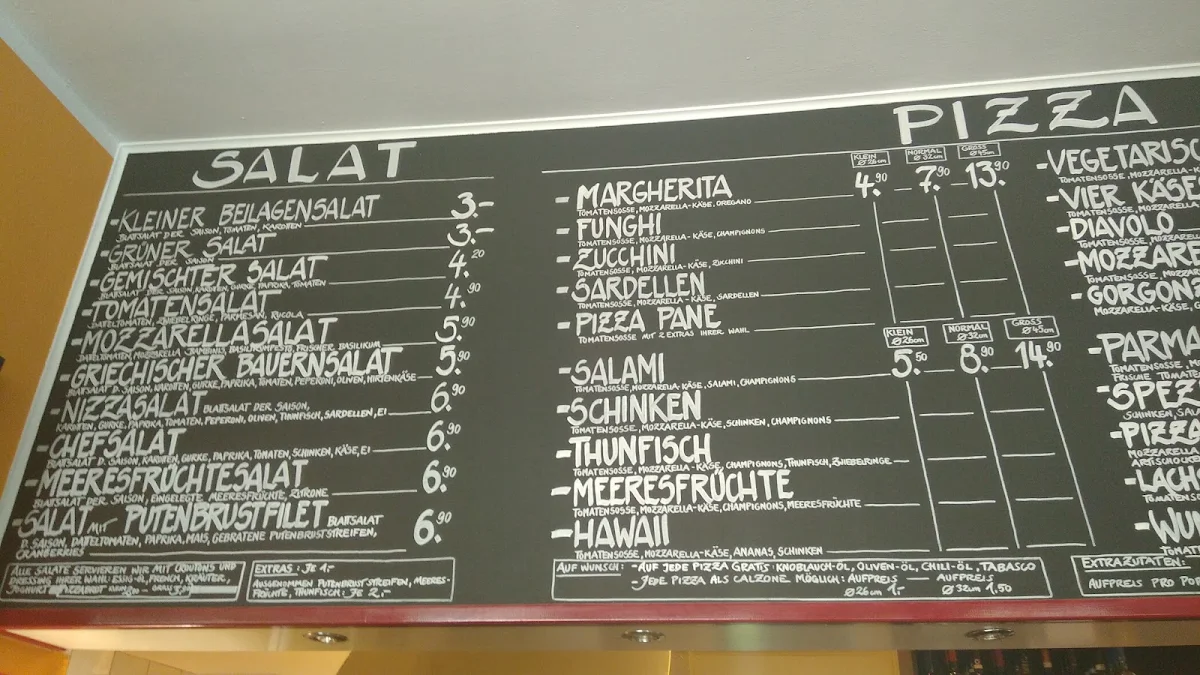 SALAT
-KLEINER BEILAGENSALAT 3.-
BLATTSALAT DER SAISON, TOMATEN, KAROTTEN
-GRÜNER SALAT 3.-
BLATTSALAT DER SAISON
-GEMISCHTER SALAT 4.20
BLATTSALAT DER SAISON, KAROTTEN, GURKE, PAPRIKA, TOMATEN
-TOMATENSALAT 4.90
DATTELTOMATEN, ZWIEBELRINGE, PARMESAN, RUCOLA
-MOZZARELLASALAT 5.90
DATTELTOMATEN, MOZZARELLA BASILIKUMPESTO, FRISCHER BASILIKUM
-GRIECHISCHER BAUERNSALAT 5.90
BLATTSALAT D. SAISON, KAROTTEN, GURKE, PAPRIKA, TOMATEN, PEPERONI, OLIVEN, HIRTENKÄSE
-NIZZASALAT BLATTSALAT DER SAISON, 6.90
KAROTTEN, GURKE, PAPRIKA, TOMATEN, PEPERONI, OLIVEN, THUNFISCH, SARDELLEN, EI
-CHEFSALAT 6.90
BLATTSALAT D. SAISON, KAROTTEN, GURKE, PAPRIKA, TOMATEN, SCHINKEN, KÄSE, EI
-MEERESFRÜCHTESALAT 6.90
BLATTSALAT DER SAISON, EINGELEGTE MEERESFRÜCHTE, ZITRONE
-SALAT MIT PUTENBRUSTFILET BLATTSALAT 6.90
D. SAISON, DATTELTOMATEN, PAPRIKA, MAIS, GEBRATENE PUTENBRUSTSTREIFEN,
CRANBERRIES
ALLE SALATE SERVIEREN WIR MIT CROUTONS UND
DRESSING IHRER WAHL: ESSIG-ÖL, FRENCH, KRÄUTER,
JOGHURT
EXTRAS: JE 1.-
AUSGENOMMEN PUTENBRUSTSTREIFEN, MEERES-
FRÜCHTE, THUNFISCH: JE 2.-
PIZZA
KLEIN Ø26cm NORMAL Ø32cm GROSS Ø45cm
-MARGHERITA 4.90 7.90 13.90
TOMATENSOSSE, MOZZARELLA-KÄSE, OREGANO
-FUNGHI
TOMATENSOSSE, MOZZARELLA-KÄSE, CHAMPIGNONS
-ZUCCHINI
TOMATENSOSSE, MOZZARELLA-KÄSE, ZUCCHINI
-SARDELLEN
TOMATENSOSSE, MOZZARELLA-KÄSE, SARDELLEN
-PIZZA PANE
TOMATENSOSSE MIT 2 EXTRAS IHRER WAHL
KLEIN Ø26cm NORMAL Ø32cm GROSS Ø45cm
-SALAMI 5.50 8.90 14.90
TOMATENSOSSE, MOZZARELLA-KÄSE, SALAMI, CHAMPIGNONS
-SCHINKEN
TOMATENSOSSE, MOZZARELLA-KÄSE, SCHINKEN, CHAMPIGNONS
-THUNFISCH
TOMATENSOSSE, MOZZARELLA-KÄSE, CHAMPIGNONS, THUNFISCH, ZWIEBELRINGE
-MEERESFRÜCHTE
TOMATENSOSSE, MOZZARELLA-KÄSE, CHAMPIGNONS, MEERESFRÜCHTE
-HAWAII
TOMATENSOSSE, MOZZARELLA-KÄSE, ANANAS, SCHINKEN
AUF WUNSCH: -AUF JEDE PIZZA GRATIS: KNOBLAUCH-ÖL, OLIVEN-ÖL, CHILI-ÖL, TABASCO
-JEDE PIZZA ALS CALZONE MÖGLICH: AUFPREIS — AUFPREIS
Ø26cm 1.- Ø32cm 1,50
-VEGETARISC
TOMATENSOSSE, MOZZARELLA
-VIER KÄSE
TOMATENSOSSE, MOZZARELLA
-DIAVOLO
TOMATENSOSSE, MOZZARELLA
-MOZZARE
TOMATENSOSSE, MOZZ
-GORGONZ
-PARMA
FRISCHE TOMATE
-SPEZ
SCHINKEN, SALA
-PIZZA
MOZZARELLA
ARTISCHOCKE
-LACH
TOMATENS
-WUN
TOMATE
EXTRAZUTATEN:
AUFPREIS PRO POR